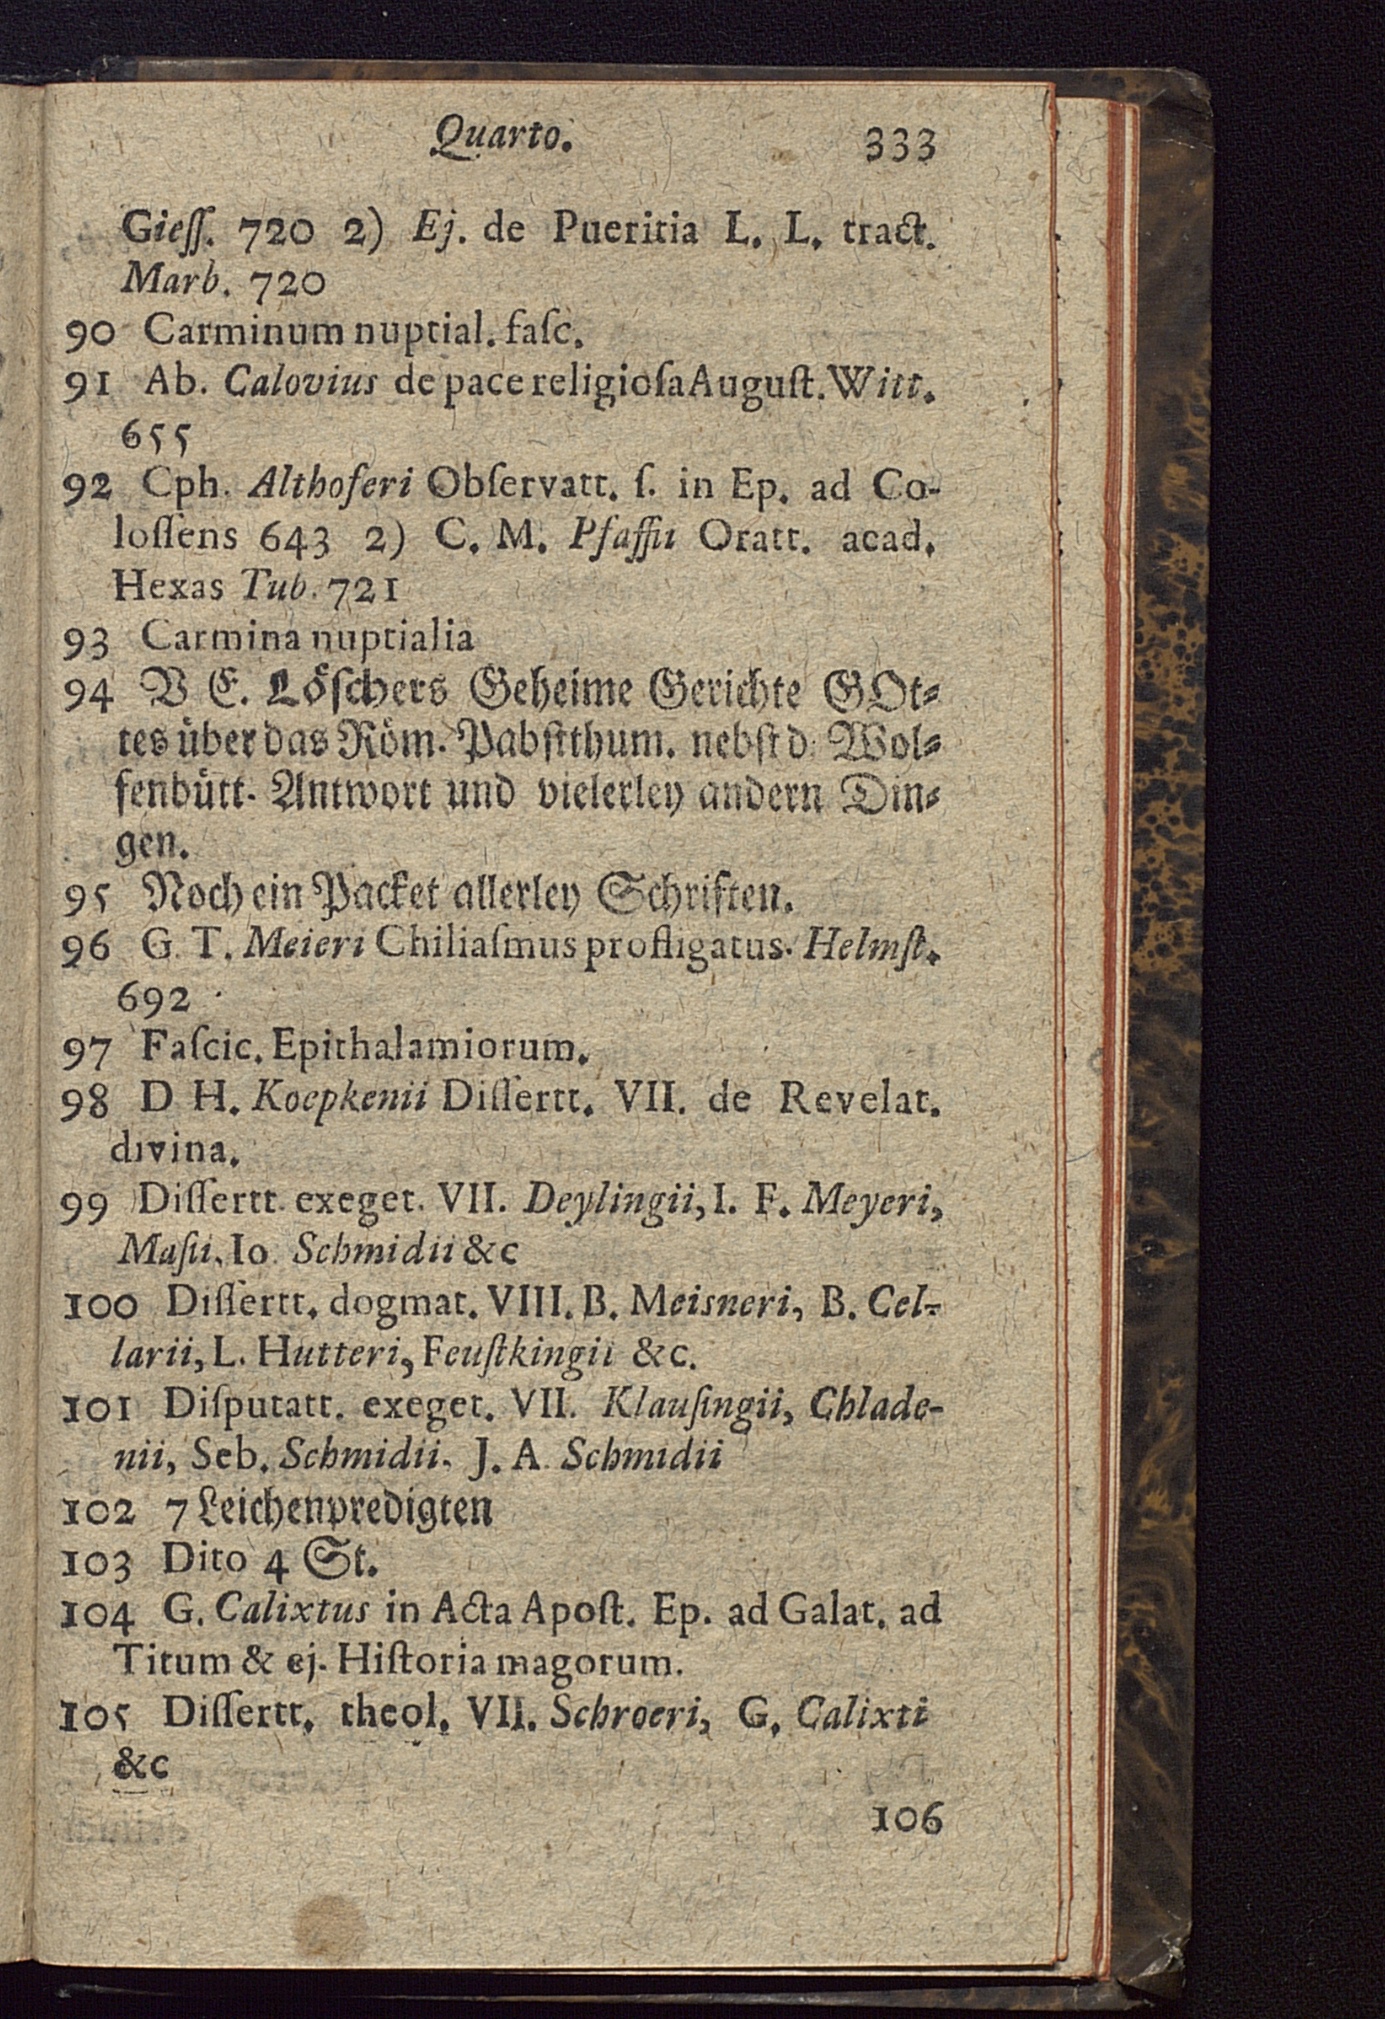 Quarto. 333
Gieſſ. 720 2) Ej. de Pueritia L. L. tract.
Marb. 720
90 Carminum nuptial. faſc.
91 Ab. Calovius de pace religioſa Auguſt. Witt.
655
92 Cph. Althoferi Obſervatt. ſ. in Ep. ad Co-
loſſens 643 2) C. M. Pfaffii Oratt. acad.
Hexas Tub. 721
93 Carmina nuptialia
94 V E. Löſchers Geheime Gerichte GOt-
tes über das Röm. Pabſtthum. nebſt d. Wol-
fenbütt. Antwort und vielerley andern Din-
gen.
95 Noch ein Packet allerley Schriften.
96 G. T. Meieri Chiliaſmus profligatus. Helmſt.
692
97 Faſcic. Epithalamiorum.
98 D H. Koepkenii Diſſertt. VII. de Revelat.
divina.
99 Diſſertt. exeget. VII. Deylingii, I. F. Meyeri,
Maſii, Io. Schmidii &c
100 Diſſertt. dogmat. VIII. B. Meisneri, B. Cel-
larii, L. Hutteri, Feuſtkingii &c.
101 Diſputatt. exeget. VII. Klauſingii, Chlade-
nii, Seb. Schmidii. J. A. Schmidii
102 7 Leichenpredigten
103 Dito 4 St.
104 G. Calixtus in Acta Apoſt. Ep. ad Galat. ad
Titum & ej. Hiſtoria magorum.
105 Diſſertt. theol. VII. Schroeri, G. Calixti
&c
106